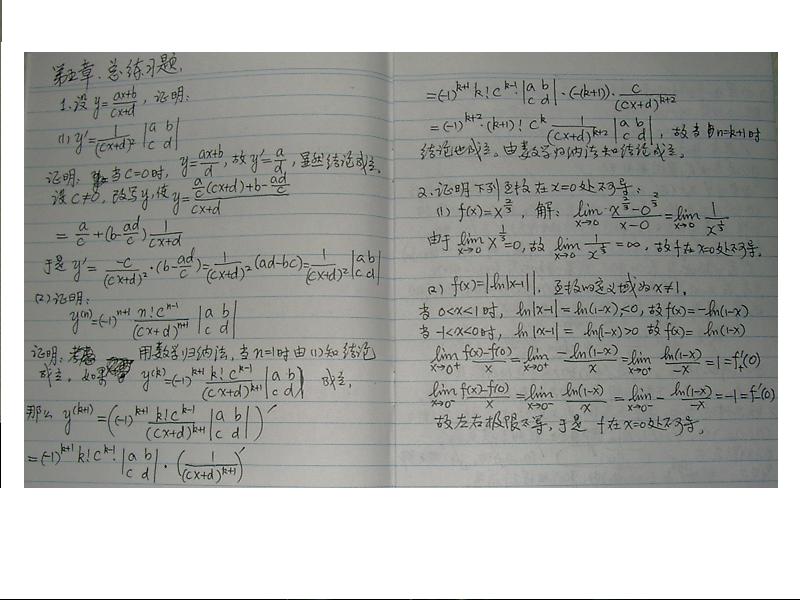 第五章、总练习题.
1.设 y=\frac{ax+b}{cx+d}, 证明:
(1) y'=\frac{1}{(cx+d)^2} \begin{vmatrix} a & b \\ c & d \end{vmatrix}
证明: 当 c=0时, y=\frac{ax+b}{d}, 故 y'=\frac{a}{d}, 显然结论成立.
设 c≠0, 改写 y, 使 y=\frac{\frac{a}{c}(cx+d)+b-\frac{ad}{c}}{cx+d}
=\frac{a}{c}+(b-\frac{ad}{c})\frac{1}{cx+d}
于是 y'=\frac{-c}{(cx+d)^2}·(b-\frac{ad}{c})=\frac{1}{(cx+d)^2}(ad-bc)=\frac{1}{(cx+d)^2}\begin{vmatrix} a & b \\ c & d \end{vmatrix}
(2) 证明:
y^{(n)}=(-1)^{n+1}\frac{n!c^{n-1}}{(cx+d)^{n+1}}\begin{vmatrix} a & b \\ c & d \end{vmatrix}
证明: 用数学归纳法, 当 n=1时由(1)知结论
成立. 如果 y^{(k)}=(-1)^{k+1}\frac{k!c^{k-1}}{(cx+d)^{k+1}}\begin{vmatrix} a & b \\ c & d \end{vmatrix} 成立,
那么 y^{(k+1)}=\left((-1)^{k+1}\frac{k!c^{k-1}}{(cx+d)^{k+1}}\begin{vmatrix} a & b \\ c & d \end{vmatrix}\right)'
=(-1)^{k+1}k!c^{k-1}\begin{vmatrix} a & b \\ c & d \end{vmatrix}·\left(\frac{1}{(cx+d)^{k+1}}\right)'
=(-1)^{k+1}k!c^{k-1}·\begin{vmatrix} a & b \\ c & d \end{vmatrix}·(-(k+1))·\frac{c}{(cx+d)^{k+2}}
=(-1)^{k+2}·(k+1)!c^k\frac{1}{(cx+d)^{k+2}}\begin{vmatrix} a & b \\ c & d \end{vmatrix}, 故当 n=k+1时
结论也成立. 由数学归纳法知结论成立。
2.证明下列函数在x=0处不可导:
(1) f(x)=x^{\frac{2}{3}}, 解: \lim_{x→0}\frac{x^{\frac{2}{3}}-0^{\frac{2}{3}}}{x-0}=\lim_{x→0}\frac{1}{x^{\frac{1}{3}}}
由于 \lim_{x→0}x^{\frac{1}{3}}=0, 故 \lim_{x→0}\frac{1}{x^{\frac{1}{3}}}=∞, 故f在x=0处不可导.
(2) f(x)=|ln|x-1||, 函数的定义域为 x≠1.
当 0<x<1时, ln|x-1|=ln(1-x)<0, 故f(x)=-ln(1-x)
当 -1<x<0时, ln|x-1|=ln(1-x)>0 故 f(x)=ln(1-x)
\lim_{x→0^+}\frac{f(x)-f(0)}{x}=\lim_{x→0^+}\frac{-ln(1-x)}{x}=\lim_{x→0^+}\frac{ln(1-x)}{-x}=1=f'_+(0)
\lim_{x→0^-}\frac{f(x)-f(0)}{x}=\lim_{x→0^-}\frac{ln(1-x)}{x}=\lim_{x→0^-}-\frac{ln(1-x)}{-x}=-1=f'_-(0)
故左右极限不等, 于是 f在x=0处不可导,